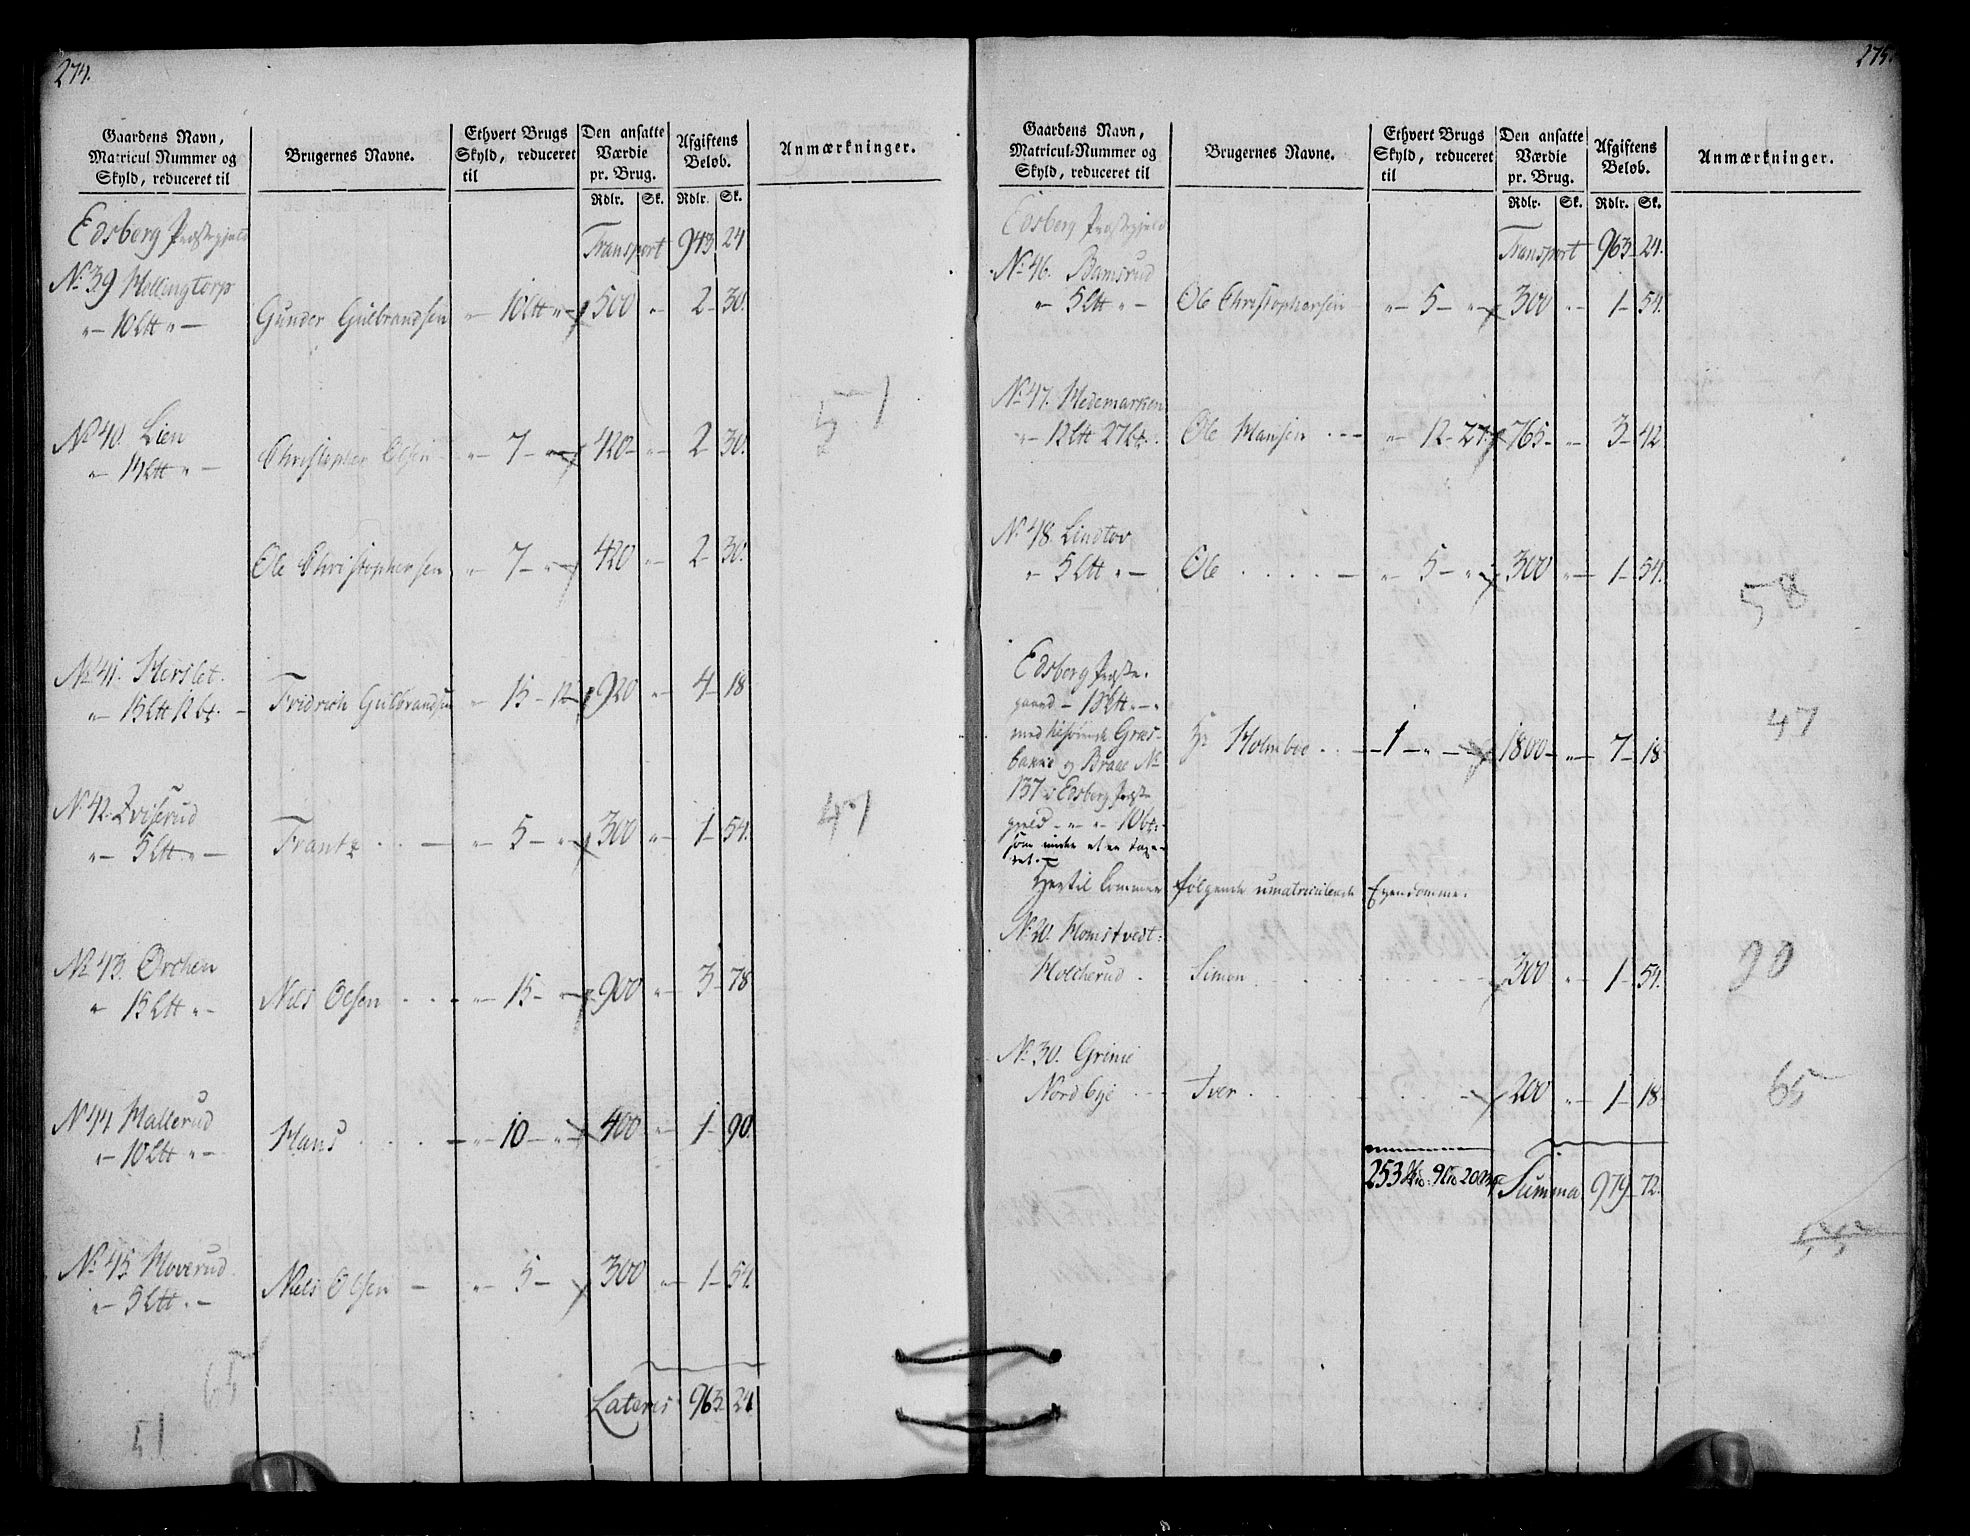 274.
Gaardens Navn, Matricul Nummer og Skyld, reduceret til
Brugernes Navne.
Ethvert Brugs Skyld, reduceret til
Den ansatte Værdie pr. Brug.
Afgiftens Beløb.
Anmærkninger.
Rdlr. Sk. Rdlr. Sk.
Edsberg Præstegjeld Transport 943 24
No 39 Hollingtorp
"— 10 Ltt "— Gunder Gulbrandsen "— 10 Ltt "— 500 "— 2— 30.
51
No 40. Lien
"— 14 Ltt "— Christopher Olsen "— 7— "— 420— "— 2— 30.
Ole Christophersen "— 7— "— 420 "— 2— 30.
No 41. Herslet.
"— 15 Ltt 12 bt. — Fridrich Gulbrandsen "— 15— 12— 920 "— 4— 18
No 42. Zviserud
"— 5 Ltt "— Frantz . . — "— 5— "— 300 "— 1— 54.
47
No 43. Orchen
" 15 Ltt "— Niels Olsen . . . — "— 15— "— 900 "— 3— 78
No 44 Hallerud
"— 10 Ltt "— Hans . . . — "— 10— "— 400 "— 1— 90.
No 45. Hoverud
"— 5 Ltt "— Niels Olsen — "— 5— 300 "— 1— 54.
65
51
Lateris 963 24
275.
Gaardens Navn, Matricul-Nummer og Skyld, reduceret til
Brugernes Navne.
Ethvert Brugs Skyld, reduceret til
Den ansatte Værdie pr. Brug.
Afgiftens Beløb.
Anmærkninger.
Rdlr. Sk. Rdlr. Sk.
Edsberg Præstegjeld Transport 963 24.
No 46. Bamsrud
"— 5 Ltt "— Ole Christophersen "— 5— "— 300 "— 1— 54.
No 47. Hedemarken
"— 12 Ltt 27 bt. Ole Hansen . -- "— 12— 27. 765— "— 3— 42
No 48. Lindtov
"— 5 Ltt "— Ole . . . . — "— 5— "— 300 "— 1— 54.
58
Edsberg Præste-
gaard — "—
med Græs-
bakke og Braae No
Hr Holmboe . . — 1— "— 1800— "— 7— 18
47
137 i Edsberg Præste
gjeld — "— "— 10 bt.
som under et er taxe-
ret. —
Hertil kommer følgende umatriculerede Eyendomme.
No 20. Homstvedt:
Holcherud . Simon . . . . 300 "— 1— 54.
90
No 30. Grime
Nordbye . — Iver . . . . 200 "— 1— 18.
65
253 9 20 Summa 979 72.